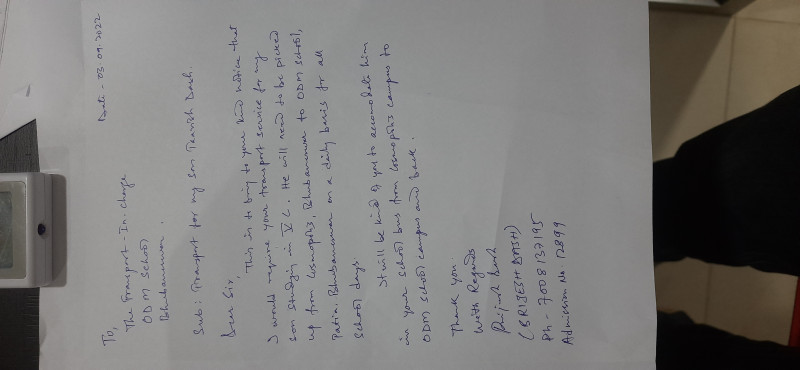 Date - 03.09.2022
To,
The Transport-In-charge
ODM School
Bhubaneswar.
Sub: Transport for my son Dash.
Dear Sir,
This is to bring to your kind notice that
I would require your transport service for my
son studying in V C. He will need to be picked
up from Cosmopolis, Bhubaneswar to ODM School,
Patia, Bhubaneswar on a daily basis for all
School days.
It will be kind of you to accomodate him
in your school bus from Cosmopolis campus to
ODM school campus and back.
Thank you
With Regards
(BRIJESH DASH)
Ph - 7008137195
Admission No. 12899